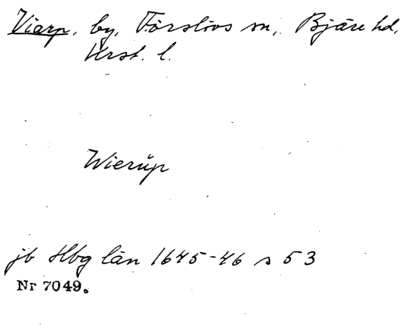 Vierp, by, Förslövs sn, Bjäre hd,
Krst. l.
Wierŭp
jb Hbg län 1645-46 s 53
Nr 7049.